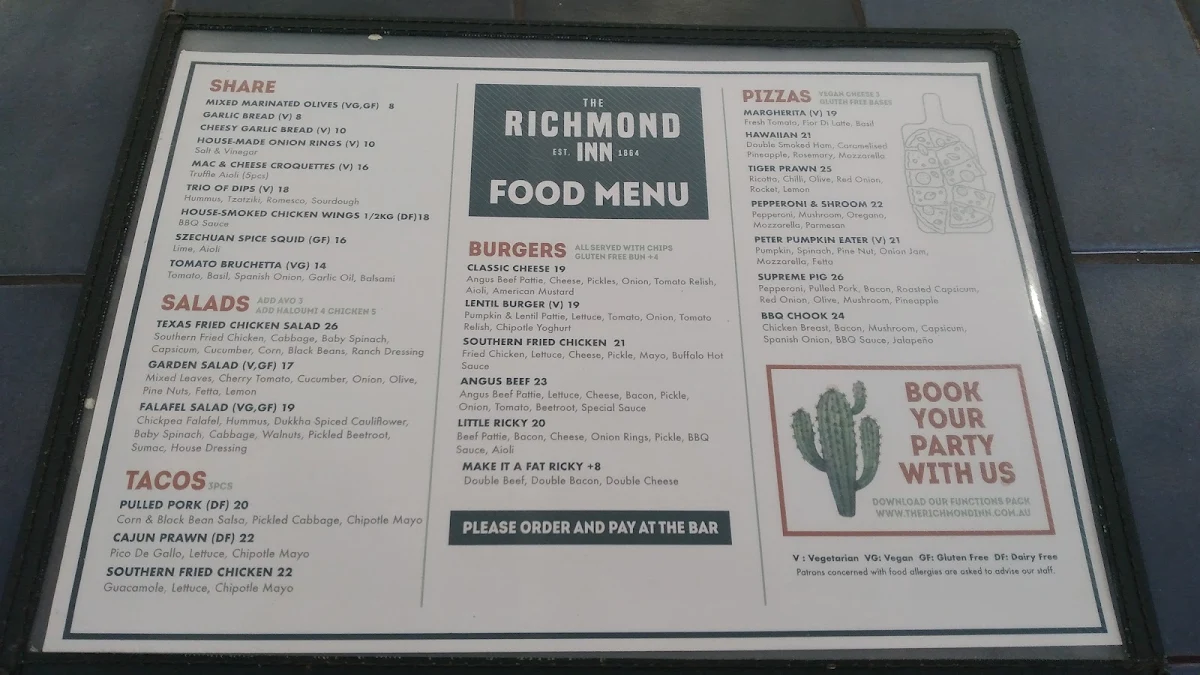 SHARE
MIXED MARINATED OLIVES (VG,GF) 8
GARLIC BREAD (V) 8
CHEESY GARLIC BREAD (V) 10
HOUSE-MADE ONION RINGS (V) 10
Salt & Vinegar
MAC & CHEESE CROQUETTES (V) 16
Truffle Aioli (5pcs)
TRIO OF DIPS (V) 18
Hummus, Tzatziki, Romesco, Sourdough
HOUSE-SMOKED CHICKEN WINGS 1/2KG (DF)18
BBQ Sauce
SZECHUAN SPICE SQUID (GF) 16
Lime, Aioli
TOMATO BRUCHETTA (VG) 14
Tomato, Basil, Spanish Onion, Garlic Oil, Balsami
SALADS
ADD AVO 3
ADD HALOUMI 4 CHICKEN 5
TEXAS FRIED CHICKEN SALAD 26
Southern Fried Chicken, Cabbage, Baby Spinach,
Capsicum, Cucumber, Corn, Black Beans, Ranch Dressing
GARDEN SALAD (V,GF) 17
Mixed Leaves, Cherry Tomato, Cucumber, Onion, Olive,
Pine Nuts, Fetta, Lemon
FALAFEL SALAD (VG,GF) 19
Chickpea Falafel, Hummus, Dukkha Spiced Cauliflower,
Baby Spinach, Cabbage, Walnuts, Pickled Beetroot,
Sumac, House Dressing
TACOS 3PCS
PULLED PORK (DF) 20
Corn & Black Bean Salsa, Pickled Cabbage, Chipotle Mayo
CAJUN PRAWN (DF) 22
Pico De Gallo, Lettuce, Chipotle Mayo
SOUTHERN FRIED CHICKEN 22
Guacamole, Lettuce, Chipotle Mayo
THE
RICHMOND
EST. INN 1864
FOOD MENU
BURGERS
ALL SERVED WITH CHIPS
GLUTEN FREE BUN +4
CLASSIC CHEESE 19
Angus Beef Pattie, Cheese, Pickles, Onion, Tomato Relish,
Aioli, American Mustard
LENTIL BURGER (V) 19
Pumpkin & Lentil Pattie, Lettuce, Tomato, Onion, Tomato
Relish, Chipotle Yoghurt
SOUTHERN FRIED CHICKEN 21
Fried Chicken, Lettuce, Cheese, Pickle, Mayo, Buffalo Hot
Sauce
ANGUS BEEF 23
Angus Beef Pattie, Lettuce, Cheese, Bacon, Pickle,
Onion, Tomato, Beetroot, Special Sauce
LITTLE RICKY 20
Beef Pattie, Bacon, Cheese, Onion Rings, Pickle, BBQ
Sauce, Aioli
MAKE IT A FAT RICKY +8
Double Beef, Double Bacon, Double Cheese
PLEASE ORDER AND PAY AT THE BAR
PIZZAS
VEGAN CHEESE 3
GLUTEN FREE BASE5
MARGHERITA (V) 19
Fresh Tomato, Fior Di Latte, Basil
HAWAIIAN 21
Double Smoked Ham, Caramelised
Pineapple, Rosemary, Mozzarella
TIGER PRAWN 25
Ricotta, Chilli, Olive, Red Onion,
Rocket, Lemon
PEPPERONI & SHROOM 22
Pepperoni, Mushroom, Oregano,
Mozzarella, Parmesan
PETER PUMPKIN EATER (V) 21
Pumpkin, Spinach, Pine Nut, Onion Jam,
Mozzarella, Fetta
SUPREME PIG 26
Pepperoni, Pulled Pork, Bacon, Roasted Capsicum,
Red Onion, Olive, Mushroom, Pineapple
BBQ CHOOK 24
Chicken Breast, Bacon, Mushroom, Capsicum,
Spanish Onion, BBQ Sauce, Jalapeño
BOOK
YOUR
PARTY
WITH US
DOWNLOAD OUR FUNCTIONS PACK
WWW.THERICHMONDINN.COM.AU
V : Vegetarian VG: Vegan GF: Gluten Free DF: Dairy Free
Patrons concerned with food allergies are asked to advise our staff.